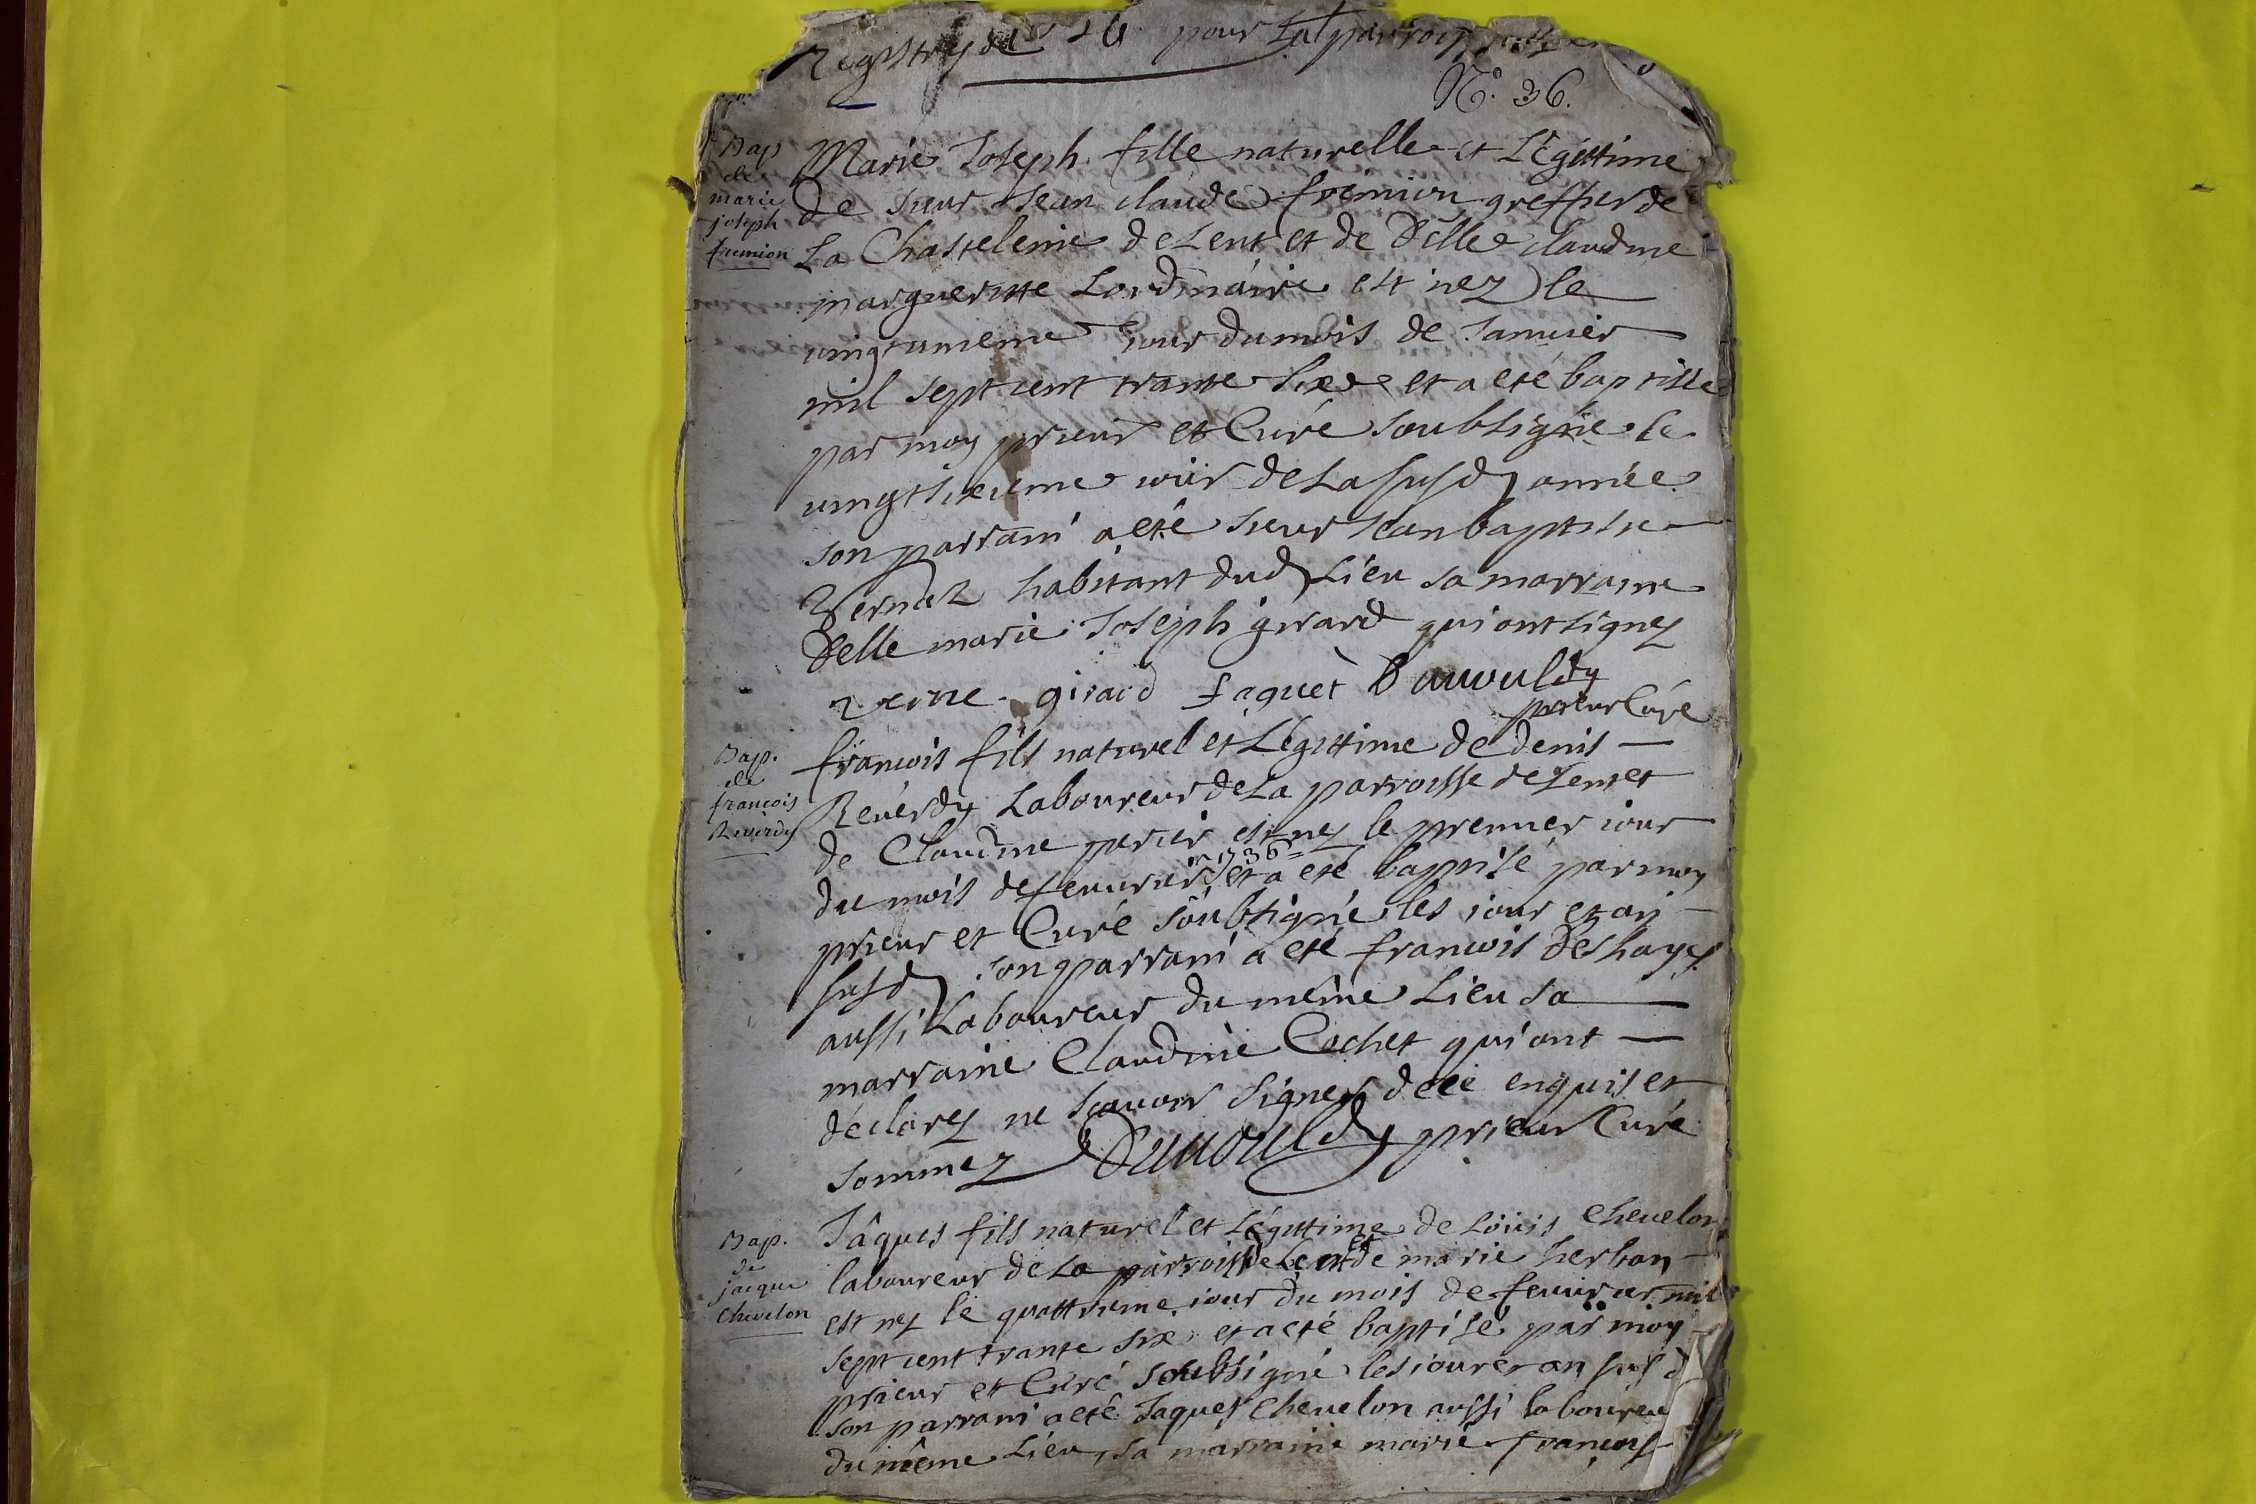 Registre de pour La parroisse
N.º 36.
Bap
de
marie
joseph
fremion
Marie Joseph fille naturelle et Légittime
de sieur Jean claude fremion greffier de
La Chastelenie de Lent et de Delle claudine
margueritte Lordinaire est nez le
vingtunieme jour du mois de Janvier
mil sept cent trante six et a eté baptisée
par moy prieur et Curé soubsigné le
vingtsixieme jour de La susd année
son parrain a eté sieur Jean baptiste
Vernez habitant dud Lieu sa marraine
Delle marie Joseph girard qui ont signez
verne girard faguet Dauvouldy
prieur Curé
Bap.
de
francois
Reverdy
francois fils naturel et Légittime de denis
Reverdy Laboureur de La parroisse de Lent et
de Claudine perier est nez le premier jour
du mois de fevurier en 1736 et a eté baptisé par moy
prieur et Curé soubsigné les jour et an
susd son parrain a eté francois Deshayes
aussi Laboureur du même Lieu sa
marraine Claudine Cochet qui ont
déclarez ne scavoir signer de ce enquis et
sommez Dauvouldy prieur Curé
Bap.
de
jacque
Chevelon
Jâques fils naturel et Légittime de Loüis chevelon
laboureur de La parroisse de Lent et de marie herban
est nez le quattrieme jour du mois de fevurier mil
sept cent trante six et a eté baptisé par moy
prieur et Curé soubsigné les jour et an susd
son parrain a eté Jaques chevelon aussi laboureur
du même Lieu, sa marraine marie francois